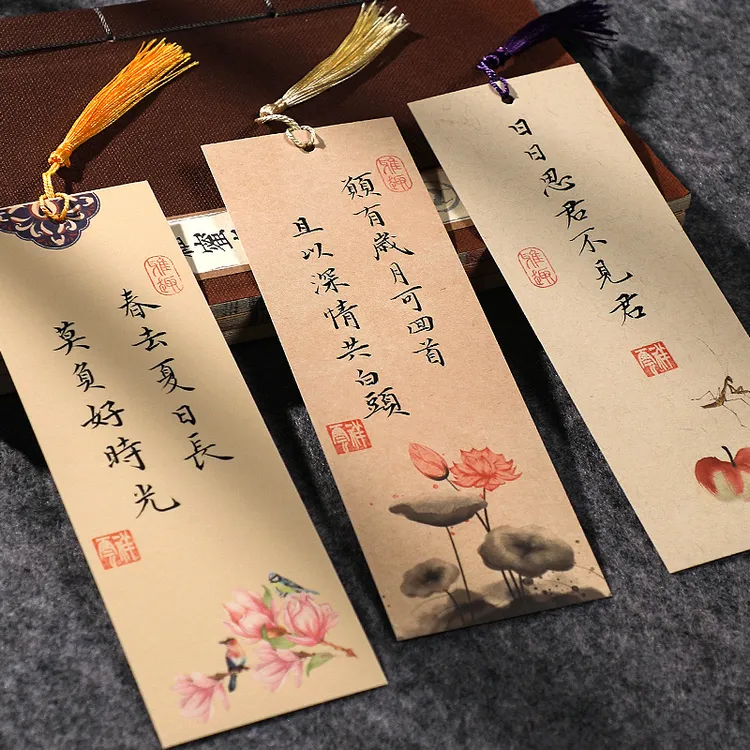 春去夏日長
莫負好時光
雅趣
願有歲月可回首
且以深情共白頭
雅趣
日日思君不見君
雅趣